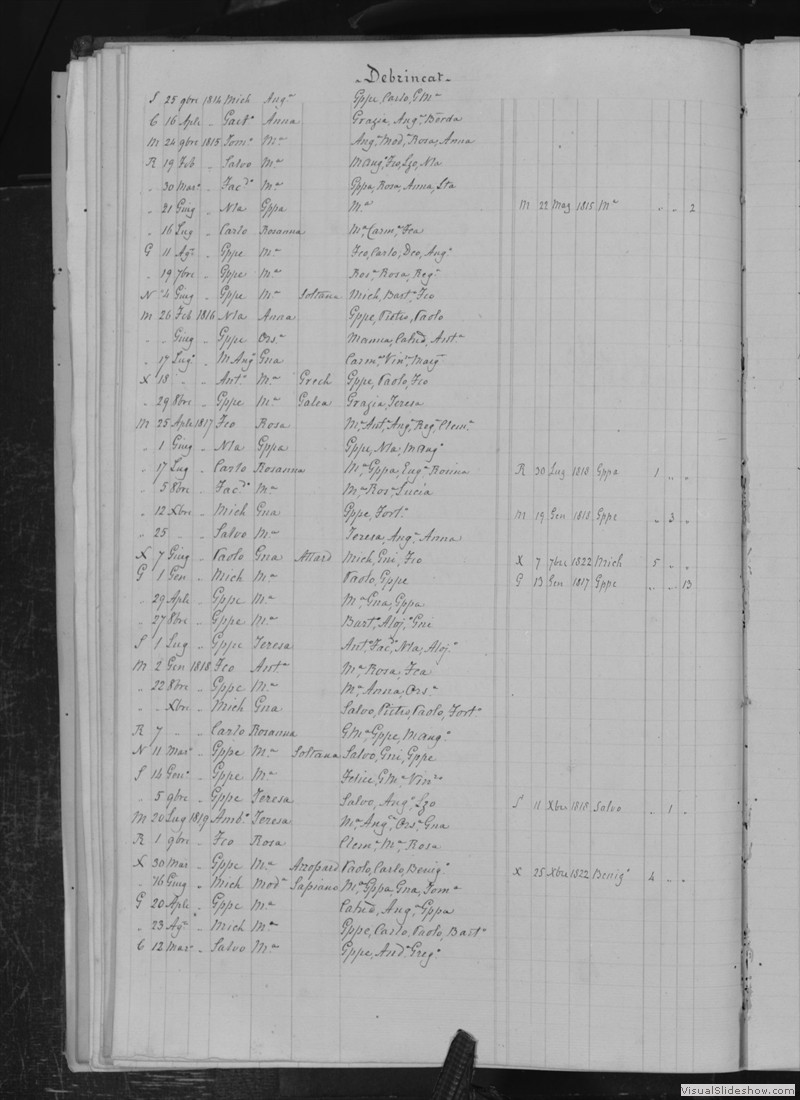 Debrincat
S 25 9bre 1814 Mich Angᵃ Gppe, Carlo, GMᵃ
C 16 Aple " Gaetº Anna Grazia, Angᵃ Borda
M 24 9bre 1815 Tomº Mᵃ Angᵃ Modᵃ Rosa, Anna
R 19 Feb " Salvo Mᵃ Mang, Fco, Lzo, Nla
" 30 Marº " Facᵈº Mᵃ Gppa, Rosa, Anna, Sta
" 21 Giug " Nla Gppa Mᵃ M 22 Mag 1815 Mᵃ " " 2
" 16 Lug " Carlo Rosanna Mᵃ, Carmᵃ, Fca
G 11 Agº " Gppe Mᵃ Fco, Carlo, Dco, Angº
" 19 7bre " Gppe Mᵃ Rosᵃ Rosa, Regᵃ
N 4 Giug " Gppe Mᵃ Soltana Mich, Bartº, Fco
M 26 Feb 1816 Nla Anna Gppe, Pietro, Paolo
" " Giug " Gppe Orsᵃ Manna, Catnᵈ, Antᵃ
" 17 Lugº " MAng Gna Carmᵃ Vinᵃ Marg
X 18 " " Antº Mᵃ Grech Gppe, Paolo, Fco
" 29 8bre " Gppe Mᵃ Galea Grazia, Teresa
M 25 Aple 1817 Fco Rosa Mᵃ, Antᵃ, Angᵃ, Regᵃ, Clemᵃ
" 1 Giug " Nla Gppa Gppe, Nla, MAngº
" 17 Lug " Carlo Rosanna Mᵃ, Gppa, Eugᵃ Rosina R 30 Lug 1818 Gppa 1 " "
" 5 8bre " Facᵈº Mᵃ Mᵃ, Rosᵃ Lucia
" 12 Xbre " Mich Gna Gppe, Fortº M 19 Gen 1818 Gppe " 3 "
" 25 " " Salvo Mᵃ Teresa, Angᵃ Anna
X 7 Giug " Paolo Gna Attard Mich, Gni, Fco X 7 7bre 1822 Mich 5 " "
G 1 Gen " Mich Mᵃ Paolo, Gppe G 13 Gen 1817 Gppe " " 13
" 29 Aple " Gppe Mᵃ Mᵃ, Gna, Gppa
" 27 8bre " Gppe Mᵃ Bartº, Alojº, Gni
S 1 Lug " Gppe Teresa Antº, Facᵈº, Nla, Alojº
M 2 Gen 1818 Fco Antᵃ Mᵃ, Rosa, Fca
" 22 8bre " Gppe Mᵃ Mᵃ, Anna, Orsᵃ
" " Xbre " Mich Gna Salvo, Pietro, Paolo, Fortº
R 7 " " Carlo Rosanna GMᵃ, Gppe, Mangº
N 11 Marº " Gppe Mᵃ Soltana Salvo, Gni, Gppe
S 14 Genº " Gppe Mᵃ Felice, GMᵃ Vinᶻº
" 5 9bre " Gppe Teresa Salvo, Angº, Lzo S 11 Xbre 1818 Salvo " 1 "
M 20 Lug 1819 Ambº Teresa Mᵃ, Angᵃ, Orsᵃ Gna
R 1 9bre " Fco Rosa Clemᵃ Mᵃ, Rosa
X 30 Mar " Gppe Mᵃ Azzopard Paolo, Carlo, Benigº
" 16 Giug " Mich Modᵃ Sapiano Mᵃ, Gppa, Gna, Tomᵃ X 25 Xbre 1822 Benigº 4 " "
G 20 Aple " Gppe Mᵃ Catnᵈ, Angᵃ, Gppa
" 23 Agº " Mich Mᵃ Gppe, Carlo, Paolo, Bartº
C 12 Marº " Salvo Mᵃ Gppe, Andº, Gregº
VisualSlideshow.com